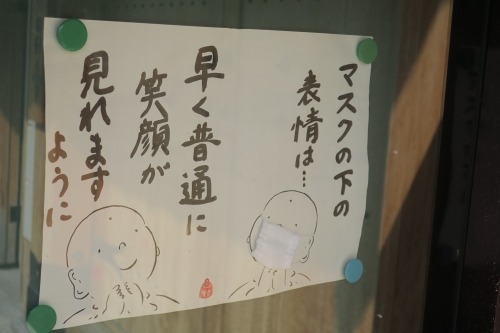 マスクの下の
表情は…
早く普通に
笑顔が
見れます
ように